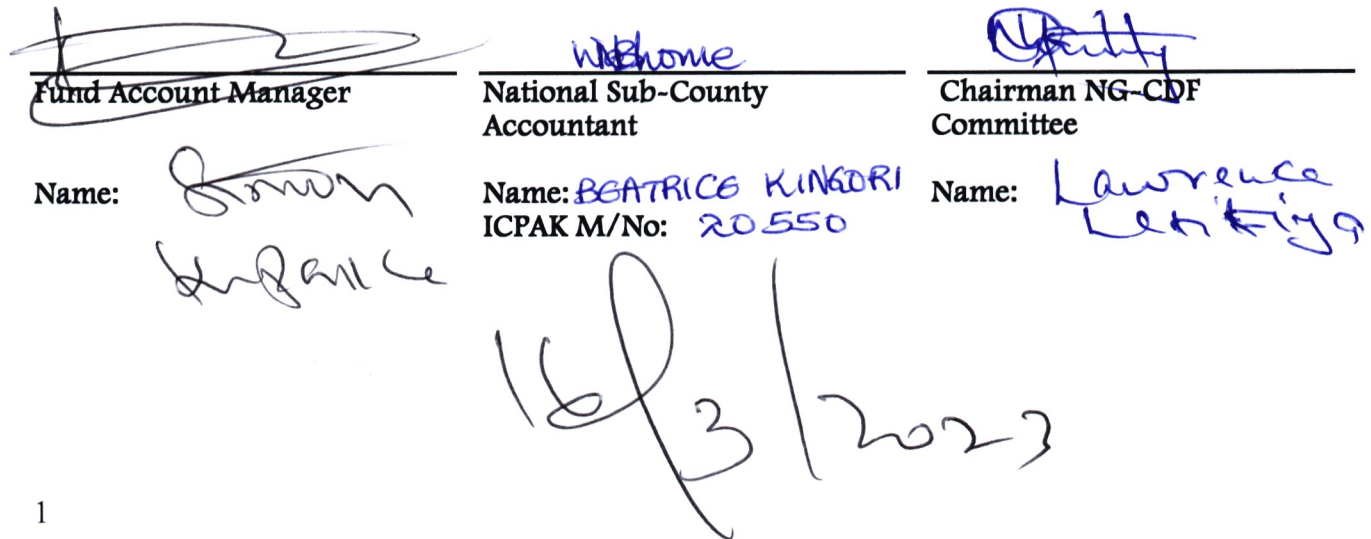 Fund Account Manager
Name: Simon
National Sub-County
Accountant
Name: BEATRICE KINGORI
ICPAK M/No: 20550
Chairman NG-CDF
Committee
Name: Lawrence
16/3/2023
1